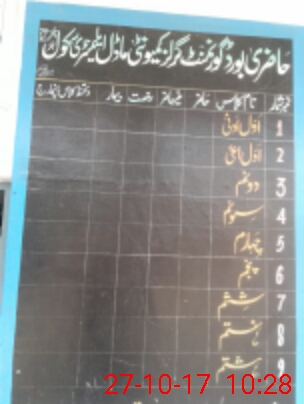 حاضری بورڈ گورنمنٹ گرلز کمیونٹی ماڈل ایلیمنٹری سکول
نمبرشمار نام کلاس حاضر غیرحاضر رخصت بیمار دستخط کلاس انچارج
1 اول ادنیٰ
2 اول اعلیٰ
3 دوئم
4 سوئم
5 چہارم
6 پنجم
7 ششم
8 ہفتم
9 ہشتم
27-10-17 10:28